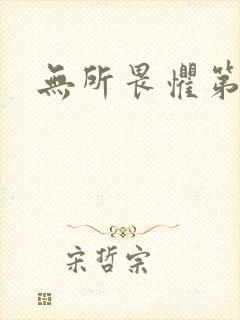 無所畏懼第
宋哲宗